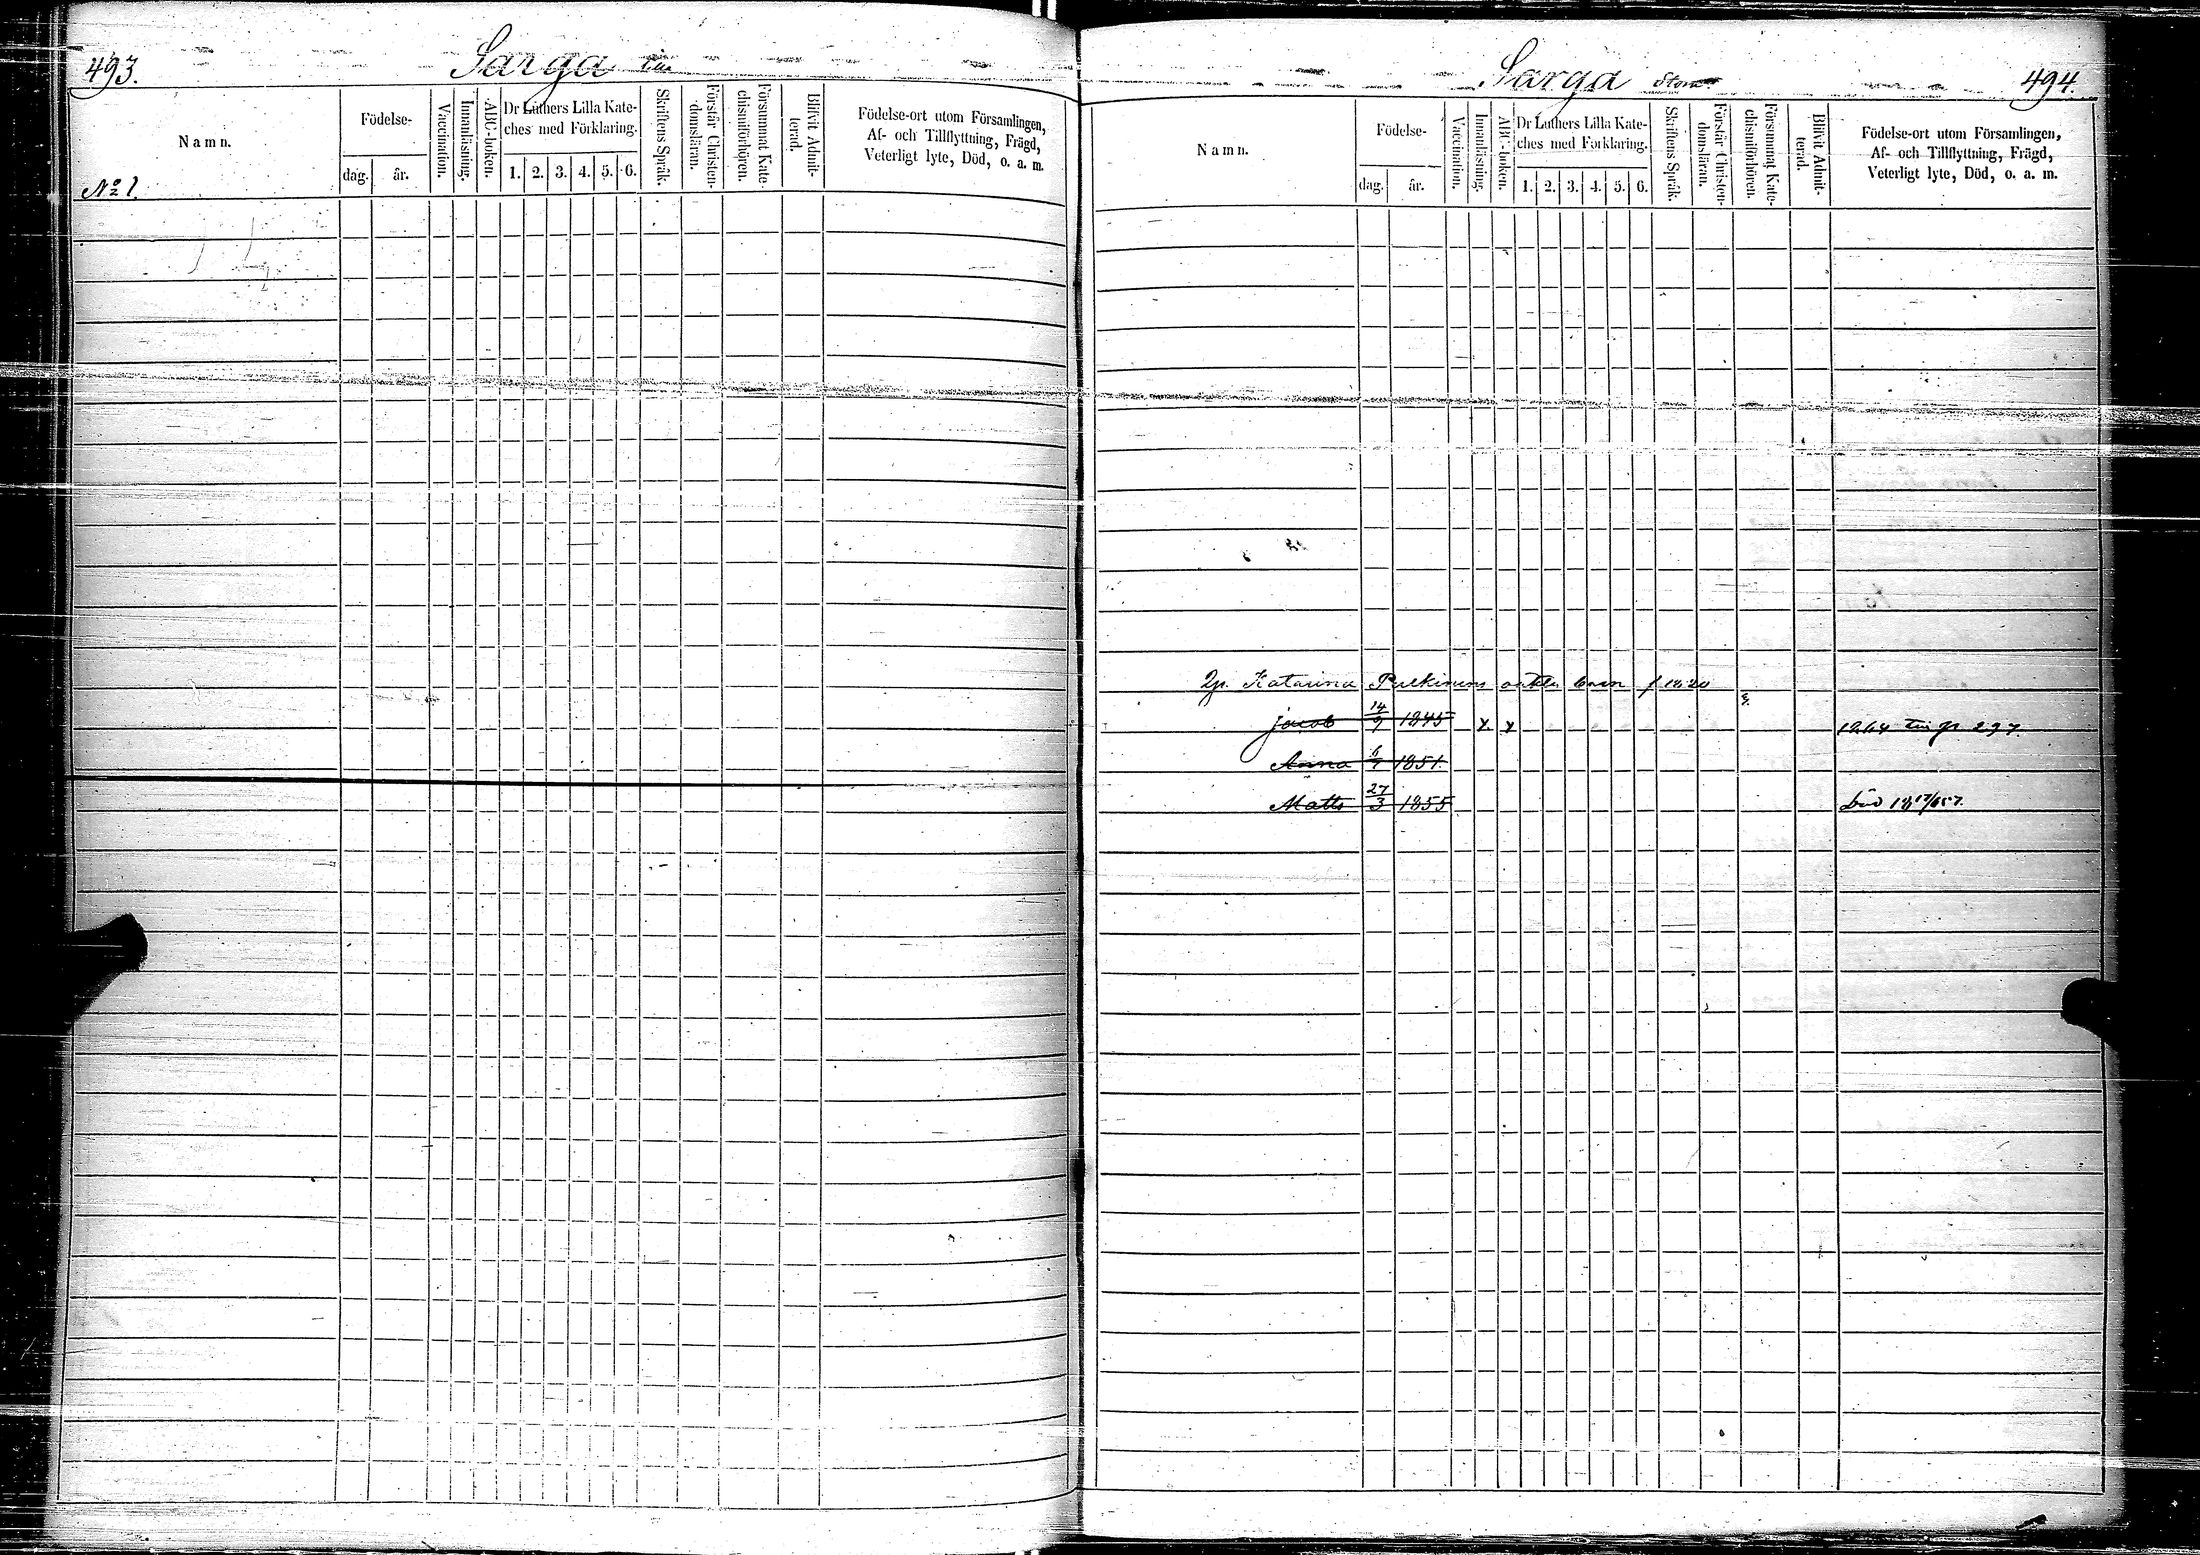 493.
Sarga Lilla
Namn.
Födelse-
dag.
år.
Vaccination.
Innanläsning.
ABC-boken.
Dr Luthers Lilla Kate-
ches med Förklaring.
1. 2. 3. 4. 5. 6.
Skriftens Språk.
Förstår Christen-
domsläran.
Försummat Kate-
chismiförhören.
Blifvit Admit-
terad.
Födelse-ort utom Församlingen,
Af- och Tillflyttning, Frägd,
Veterligt lyte, Död, o. a. m.
No 1.
Sarga Stora
494.
Namn.
Födelse-
dag.
år.
Vaccination.
Innanläsning.
ABC-boken.
Dr Luthers Lilla Kate-
ches med Förklaring.
1. 2. 3. 4. 5. 6.
Skriftens Språk.
Förstår Christen-
domsläran.
Försummat Kate-
chismiförhören.
Blifvit Admit-
terad.
Födelse-ort utom Församlingen,
Af- och Tillflyttning, Frägd,
Veterligt lyte, Död, o. a. m.
Katarina Pulkinens oäkta barn f 1820
Jacob 14/9 1845 x x 1864 297.
Anna 1851.
Matts 27/3 1855 Död